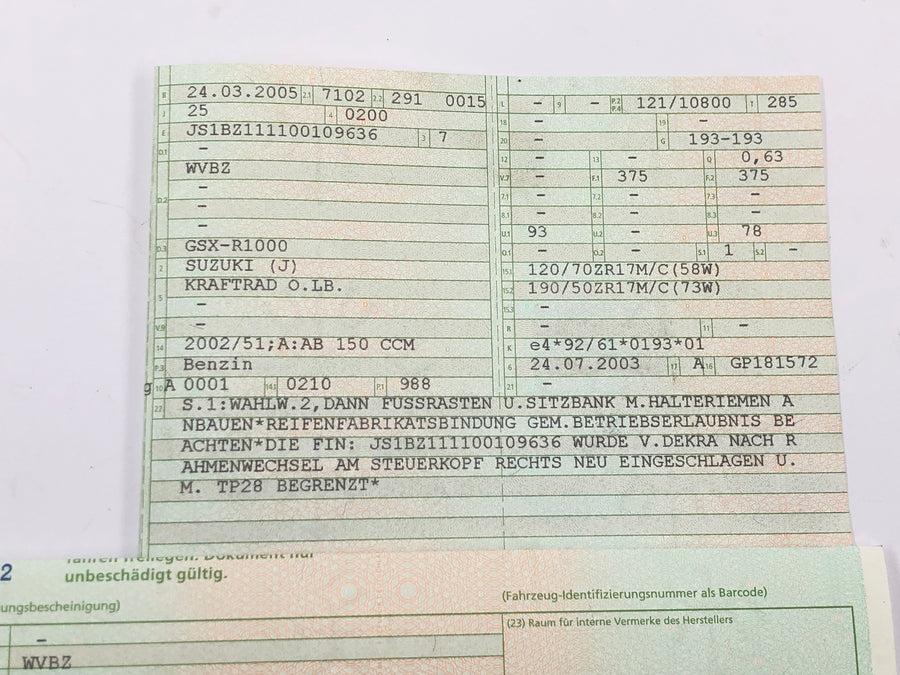 B 24.03.2005 2.1 7102 2.2 291 0015 L - 9 - P.2 P.4 121/10800 T 285
J 25 4 0200 18 - 19 -
E JS1BZ111100109636 3 7 20 - G 193-193
D.1 - 12 - 13 - Q 0,63
WVBZ V.7 - F.1 375 F.2 375
D.2 - 7.1 - 7.2 - 7.3 -
- 8.1 - 8.2 - 8.3 -
- U.1 93 U.2 - U.3 78
D.3 GSX-R1000 O.1 - O.2 - S.1 1 S.2 -
2 SUZUKI (J) 15.1 120/70ZR17M/C(58W)
5 KRAFTRAD O.LB. 15.2 190/50ZR17M/C(73W)
- 15.3 -
V.9 - R - 11 -
14 2002/51;A:AB 150 CCM K e4*92/61*0193*01
P.3 Benzin 6 24.07.2003 17 A 16 GP181572
g A 10 0001 14.1 0210 P.1 988 21 -
22 S.1:WAHLW.2,DANN FUSSRASTEN U.SITZBANK M.HALTERIEMEN A
NBAUEN*REIFENFABRIKATSBINDUNG GEM.BETRIEBSERLAUBNIS BE
ACHTEN*DIE FIN: JS1BZ111100109636 WURDE V.DEKRA NACH R
AHMENWECHSEL AM STEUERKOPF RECHTS NEU EINGESCHLAGEN U.
M. TP28 BEGRENZT*
Dokument nur
2 unbeschädigt gültig.
ungsbescheinigung) (Fahrzeug-Identifizierungsnummer als Barcode)
(23) Raum für interne Vermerke des Herstellers
-
WVBZ